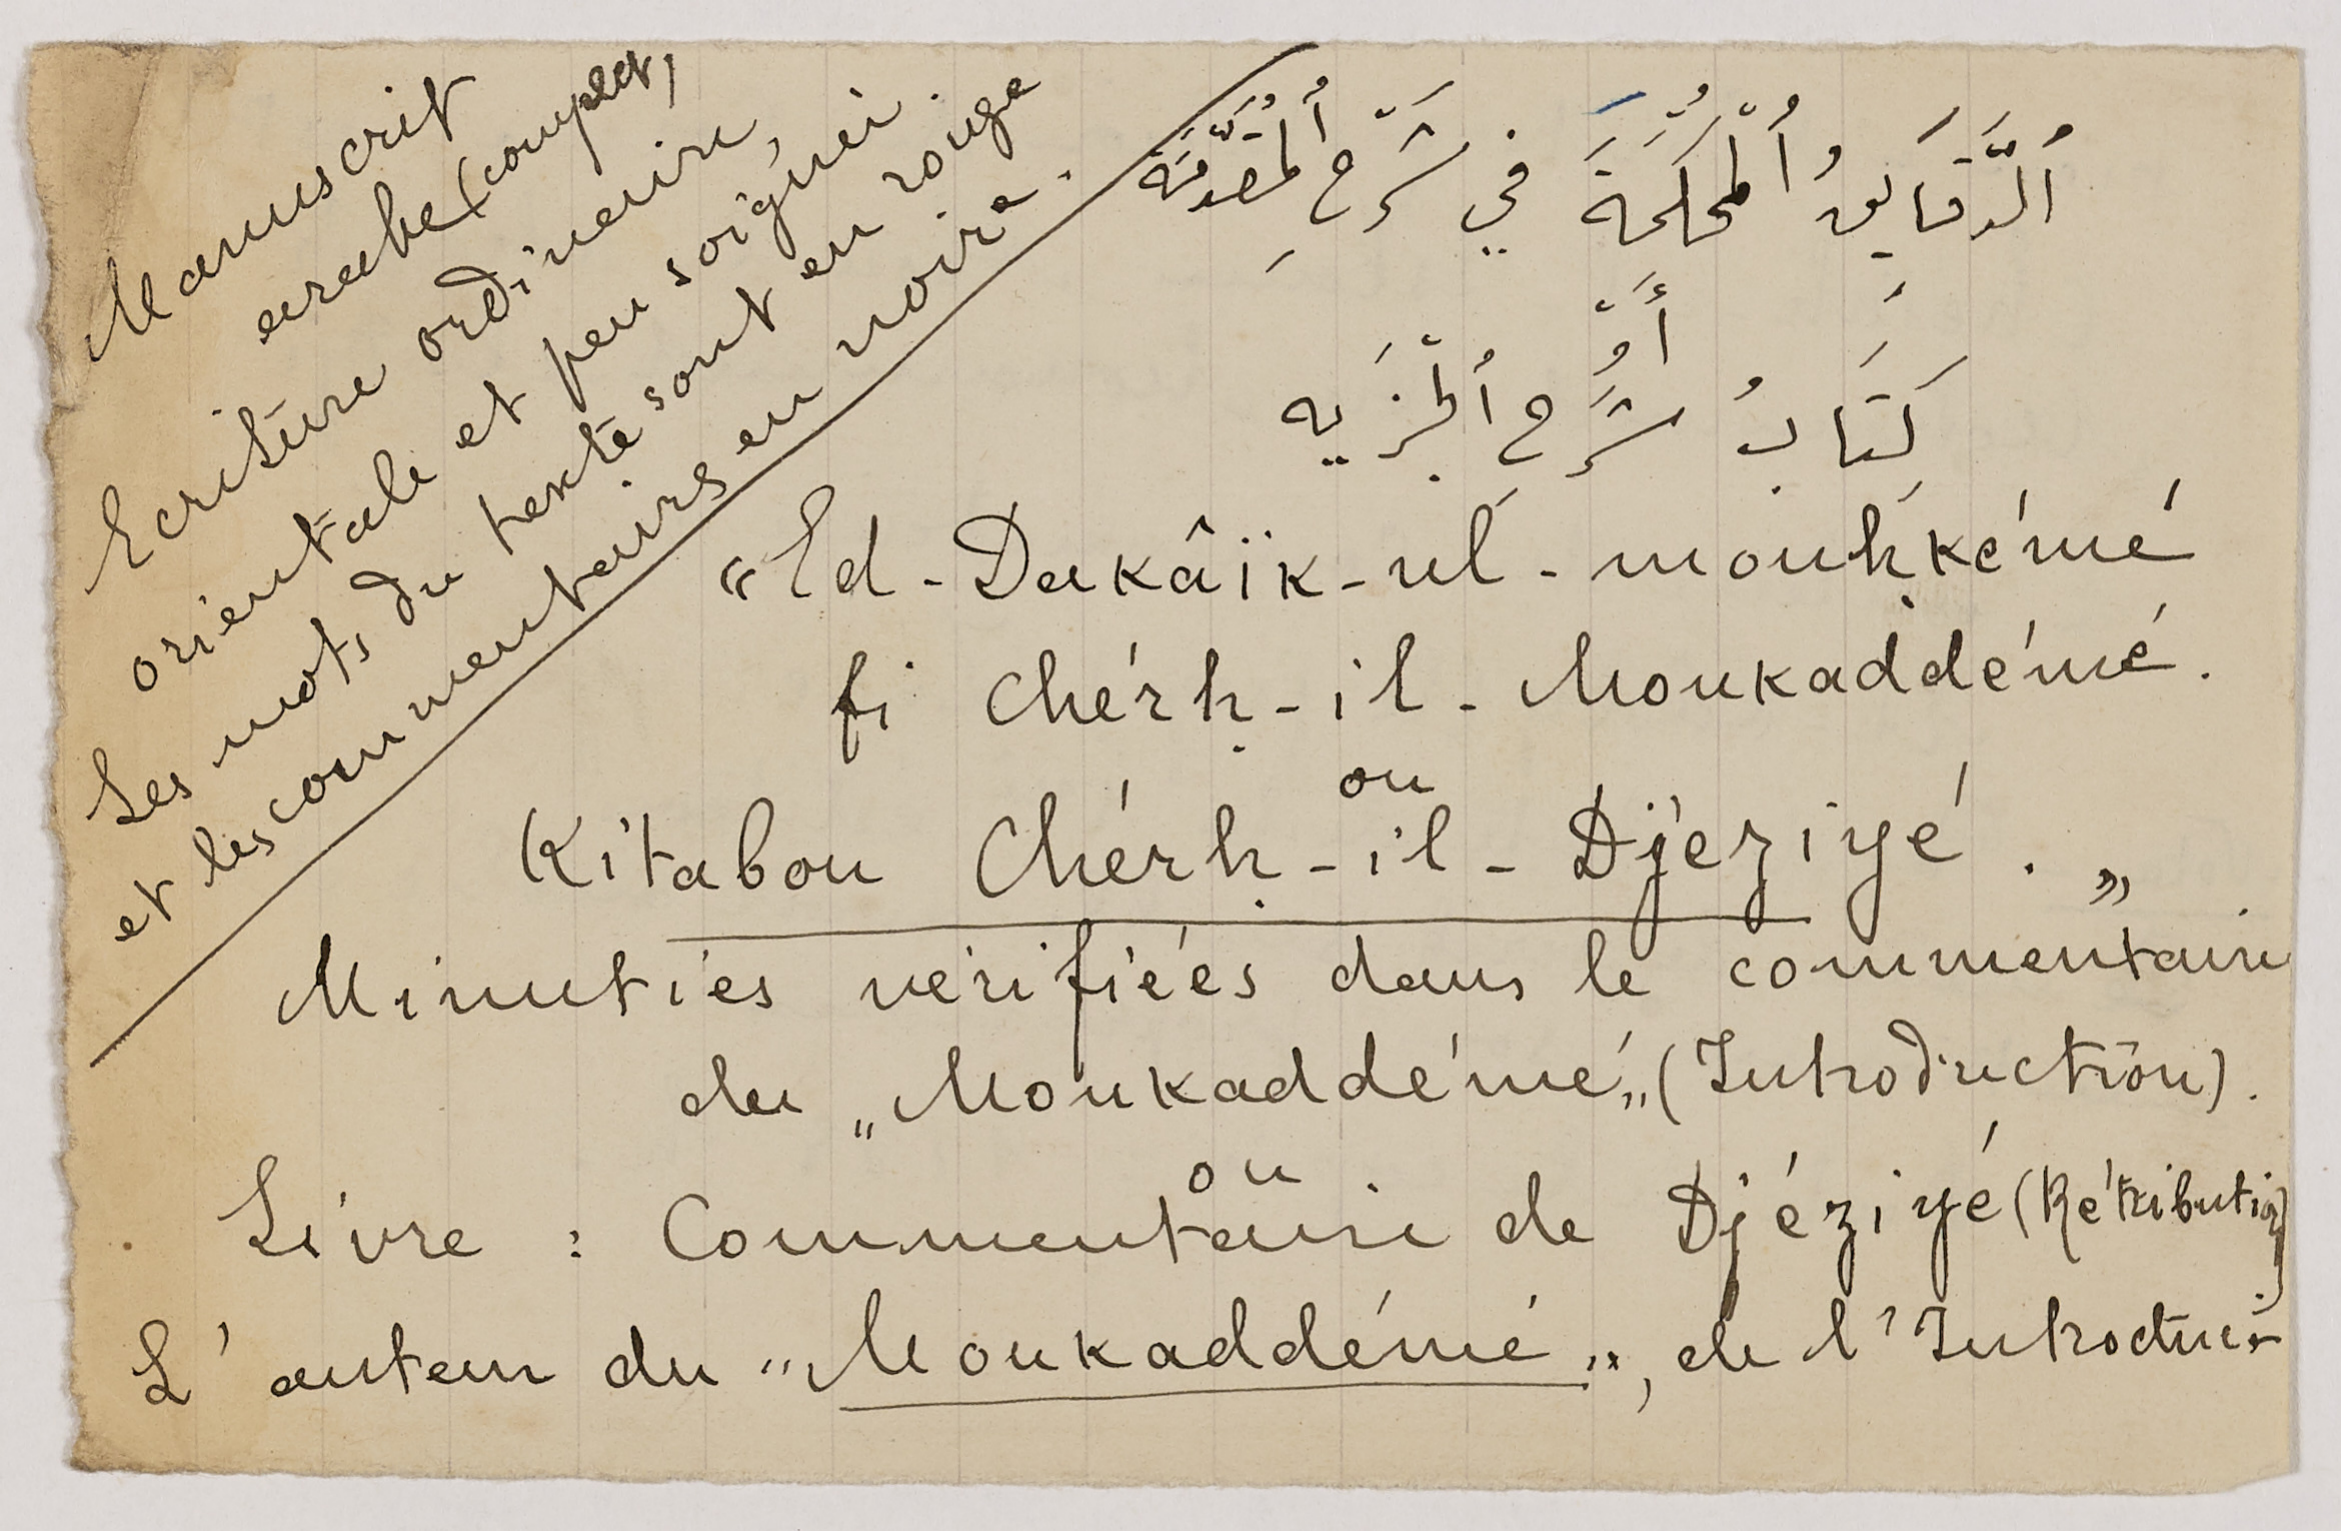 Manuscrit
arabe (complet)
Ecriture ordinaire,
orientale et peu soignée.
Les mots du texte sont en rouge
et les commentaires en noir.
اَلدَّقَايِقُ اُلْمُحْكَمَةَ في شَرْحِ اُلْمُقَدَّمَة
أَوْ
كِتَابُ شَرْحِ اُلْجَزَيِه
"Ed-Dakâïk-ul-mouḥkémé
fi Chérḥ-il-Moukaddémé.
ou
Kitabou Chérḥ-il-Djéziyé. „
Minuties vérifiées dans le commentaire
du „Moukaddémé„ (Introduction).
ou
Livre : Commentaire de Djéziyé (Rétribution)
L'auteur du "Moukaddémé", de l'Introduc-